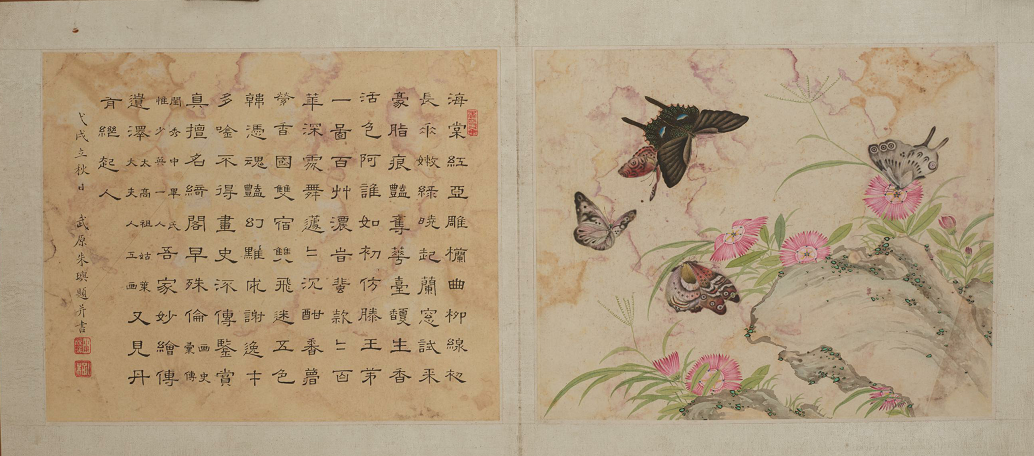 海棠紅亞雕欄曲柳線初
長垂嫩綠曉起蘭窗試采
豪脂痕豔奪臺馥生香
活色阿誰如初仿滕王第
一圖百艸濃香蜚款〻百
華深處舞蘧〻沉酣香夢
縈香國雙宿雙飛迷五色
韓憑魂豔幻難成謝逸才
多唫不得畫史流傳鑒賞
真擅名繡閣早殊倫畫史彙傳
閨秀中畢氏惟少一人吾家妙繪傳
遺澤太高祖姑葉太夫人工畫又見丹
青繼起人
戊戌立秋日 武原朱璵題并書